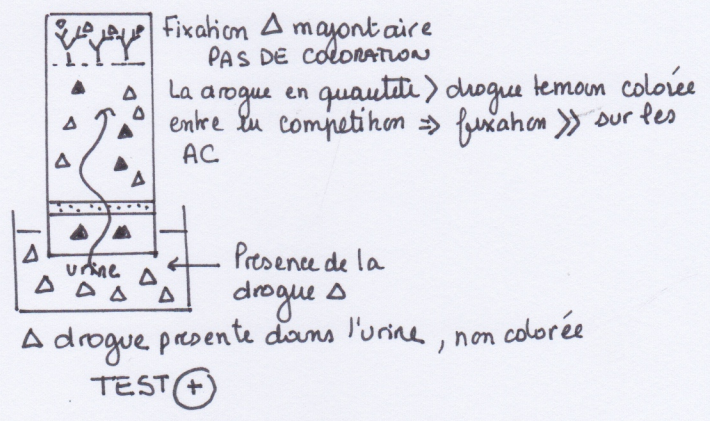 Fixation △ majoritaire
PAS DE COLORATION
La drogue en quantité > drogue temoin colorée
entre en competition ⇒ fixation >> sur les
AC
urine
Presence de la
drogue △
△ drogue presente dans l'urine, non colorée
TEST +